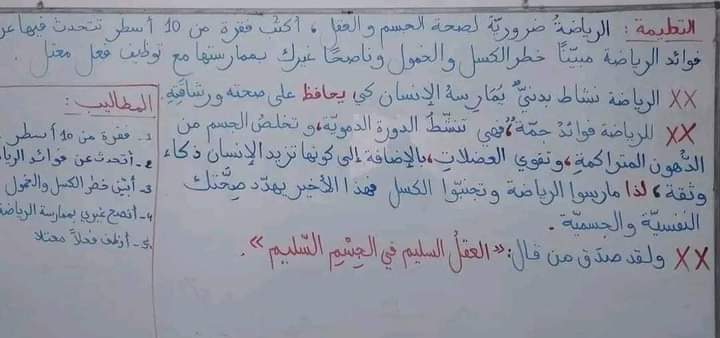 التعليمة : الرياضةُ ضروريّة لصحة الجسم و العقل ، أكتب فقرة من 10 أسطر تتحدث فيها عن
فوائد الرياضة مبيّنًا خطر الكسل و الخمول و ناصحًا غيرك بممارستها مع توظيف فعل معتل .
×× الرياضة نشاط بدنيٌّ يُمَارِسهُ الإنسان كي يحافظ على صحته ورشاقَتِهِ.
×× للرياضة فوائدٌ جمّةٌ ، فهي تنشّطُ الدورة الدمويّة ، و تخلصُ الجسم من
الدّهون المتراكمةِ ، وتقوي العضلاتِ ، بالإضافة إلى كونها تزيد الإنسان ذكاء
وثقة ، لذا مارسوا الرياضة و تجنبّوا الكسل فهذا الأخير يهدّد صِحَّتك
النفسيّة والجسميّة .
×× ولقد صدَق من قال : « العقلُ السليم في الجِسْمِ السّليم » .
المطاليب :
1- فقرة من 10 أسطر .
2- أتحدث عن فوائد الريا
3- أبيّن خطر الكسل والخمول
4- أنصح غيري بممارسة الرياضة
5- أوظف فعلاً معتلا